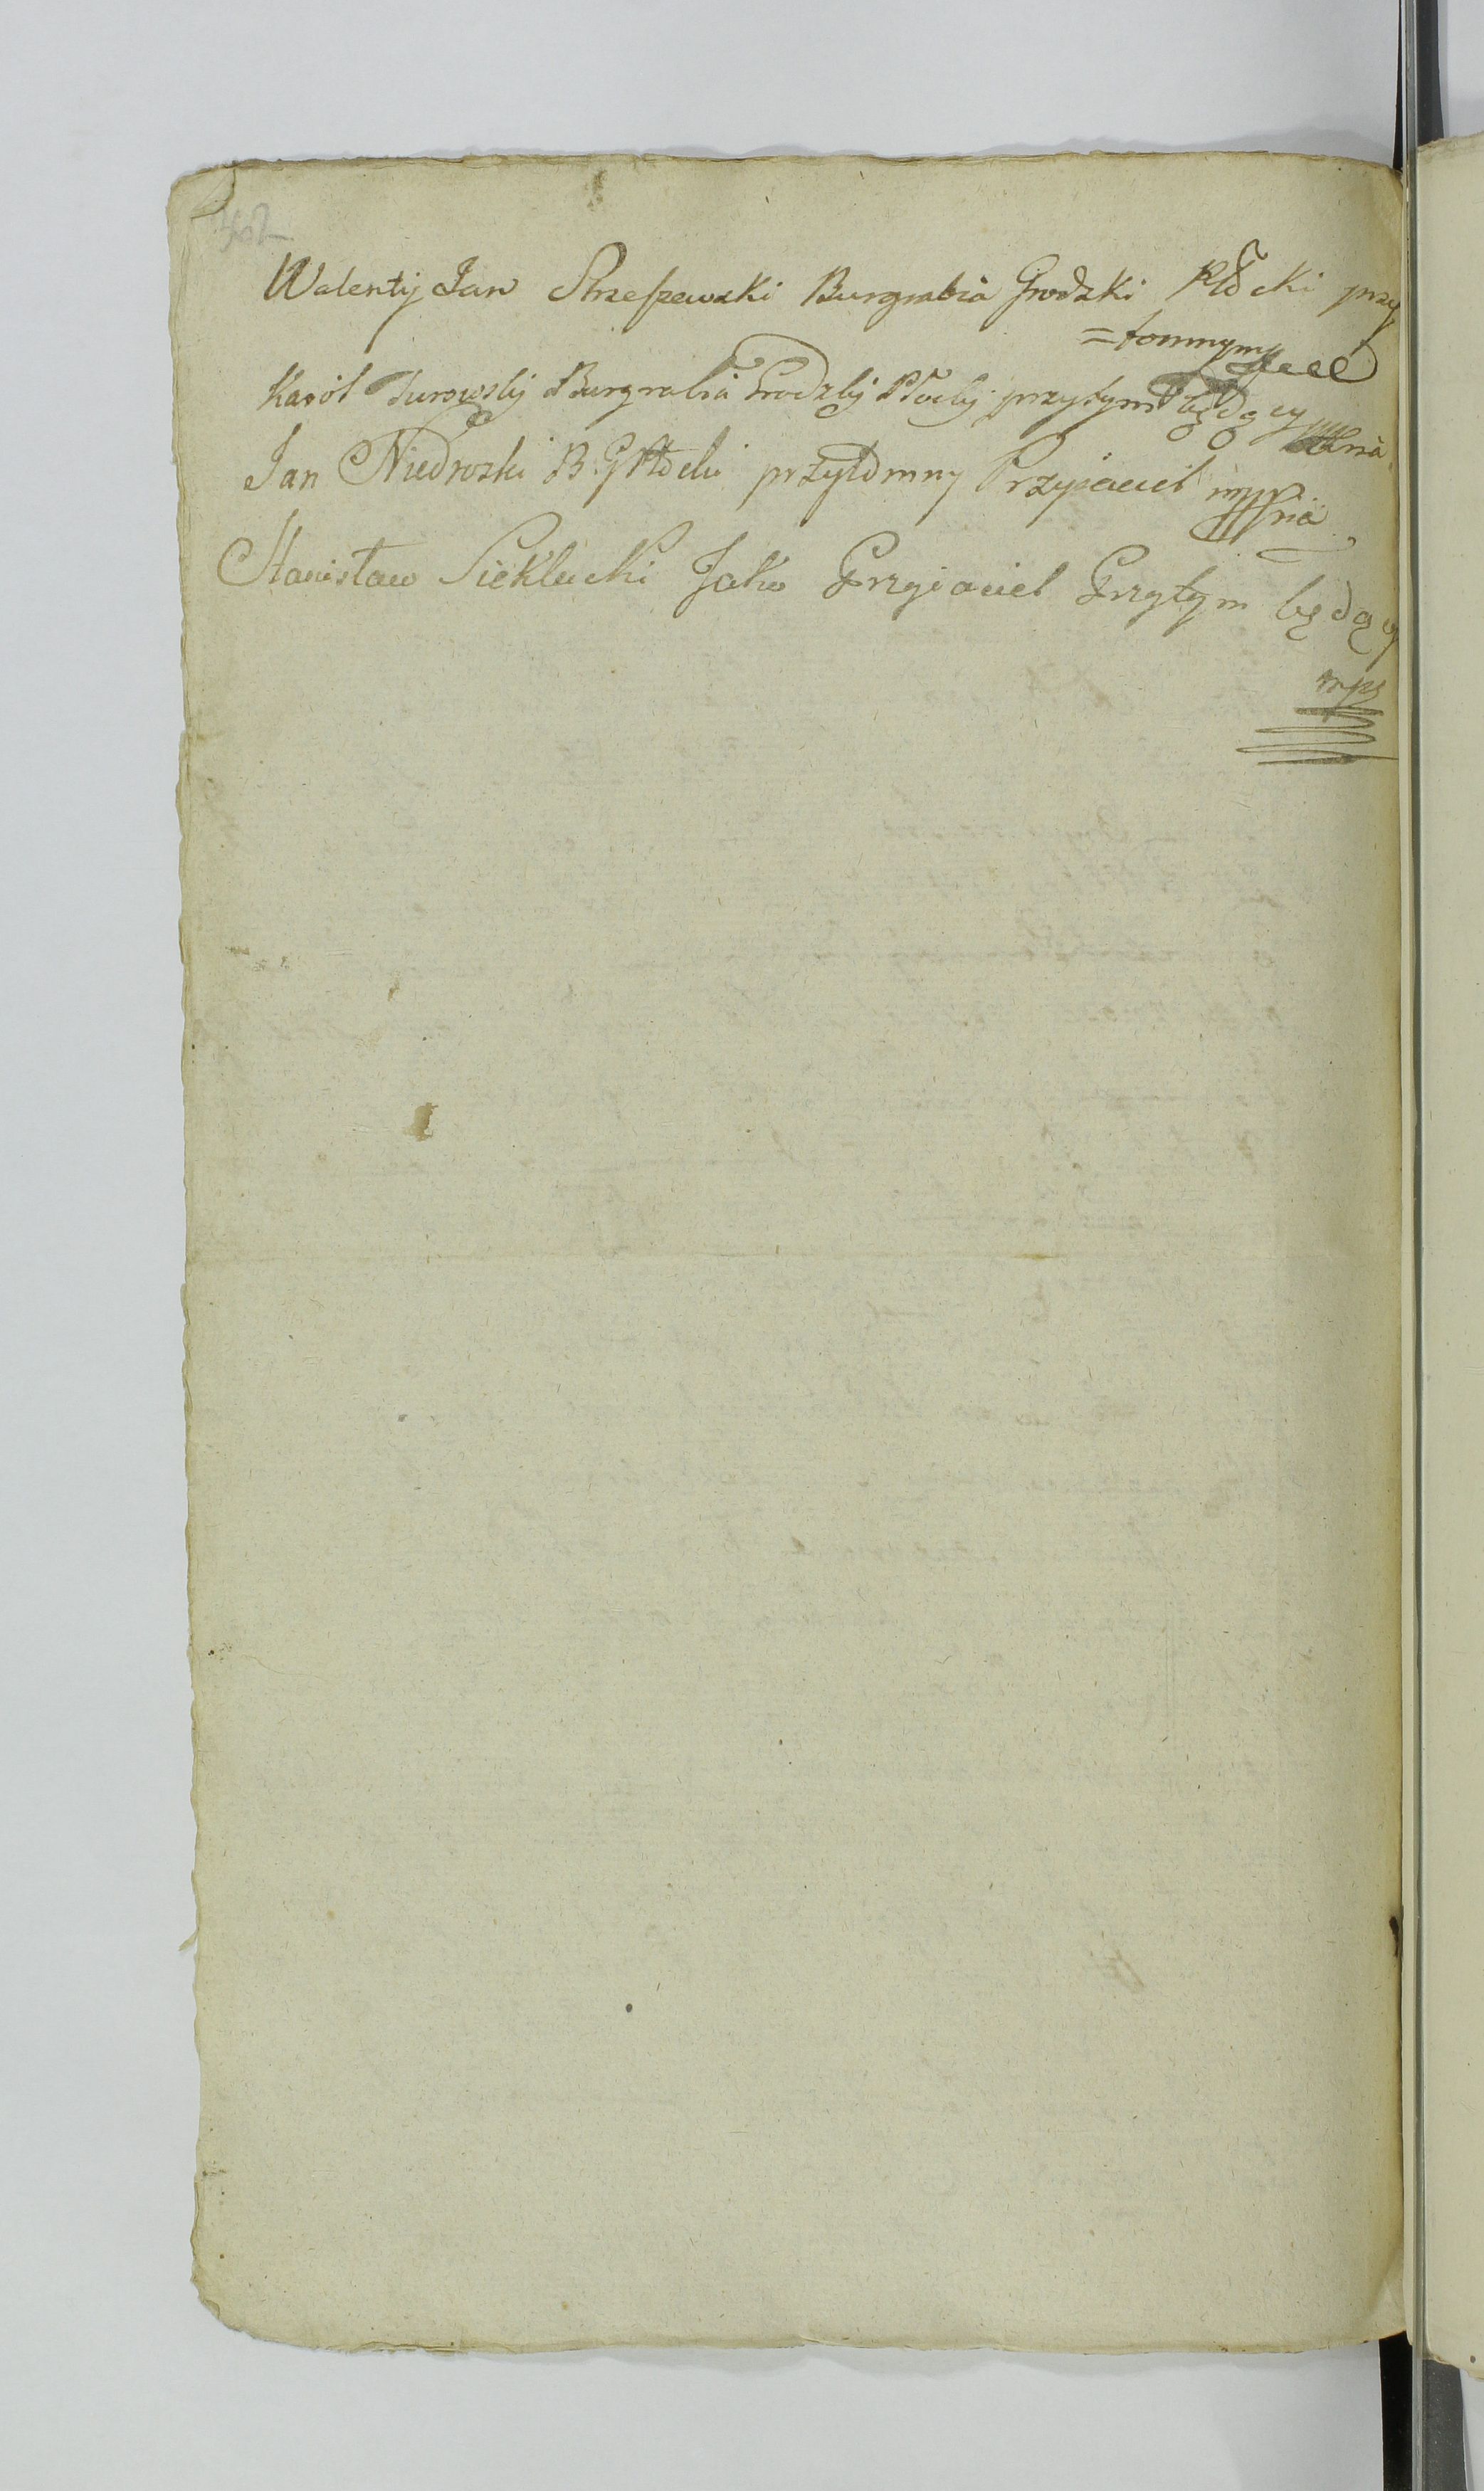 Walenty Jan Strzeszewski Burgrabia Grodzki Płocki przy
=tomnym
Karól Turowsky Burgrabia Grodzky Płocky przytym będący
Jan Niedrozki B: G Płocki przytomny Przyiaciel
Stanisław Sieklucki Jako Przyiaciel Przytym będący
mp